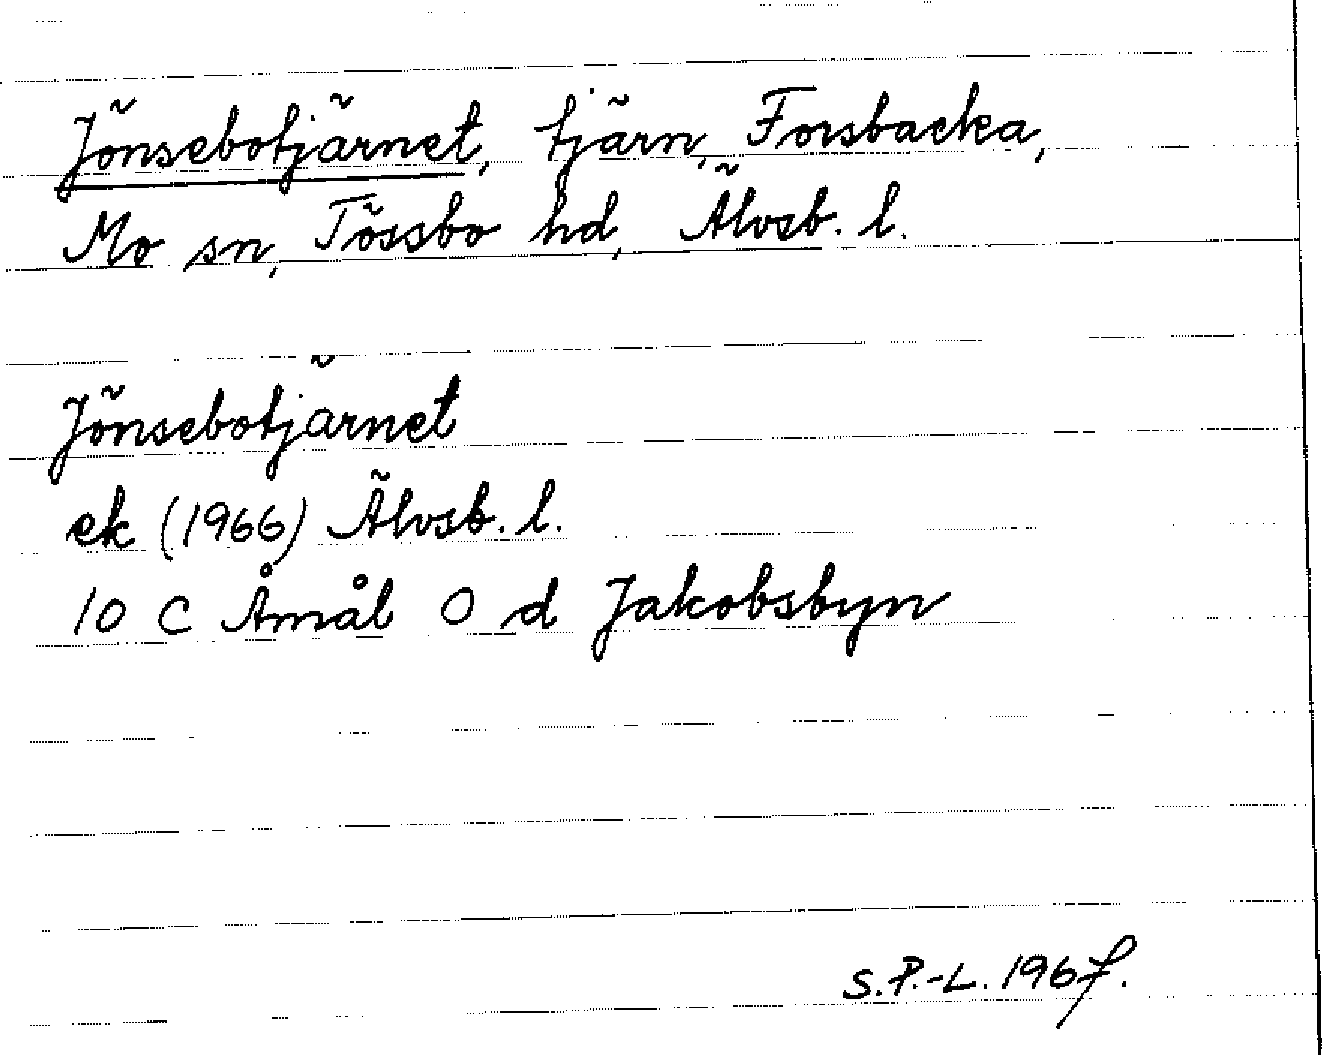 Jönsebotjärnet, tjärn, Forsbacka,
Mo sn, Tössbo hd, Älvsb. l.
Jönsebotjärnet
ek (1966) Älvsb. l.
10 C Åmål O d Jakobsbyn
S.P.-L. 1967.